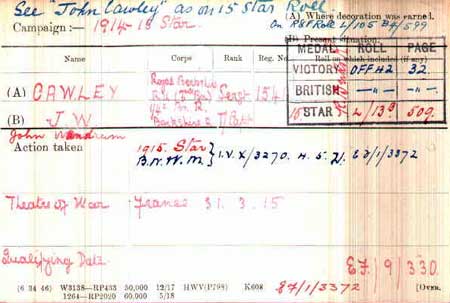 See "John Cawley" as on 15 Star Roll
(A) Where decoration was earned.
Campaign:— 1914-15 Star
On R&F Roll L/105 B4/599
(B) Present situation.
Name Corps Rank Reg. No. Roll on which included (if any)
MEDAL ROLL PAGE
VICTORY OFF H2 32.
BRITISH —"— —"—
15 STAR L/13 509.
(A) CAWLEY Sergt 154
(B) J.W. Berkshire R
John
Action taken 1915. Star
B.W.M. } I.V.X/3270. H.S.V. E3/1/3372
Theatre of War France 31.3.15
Qualifying Date
E7/9/330.
(6 34 46) W3138—RP433 50,000 12/17 HWV(P798) K608 E7/1/3372 [OVER.
1264—RP2020 60,000 5/18